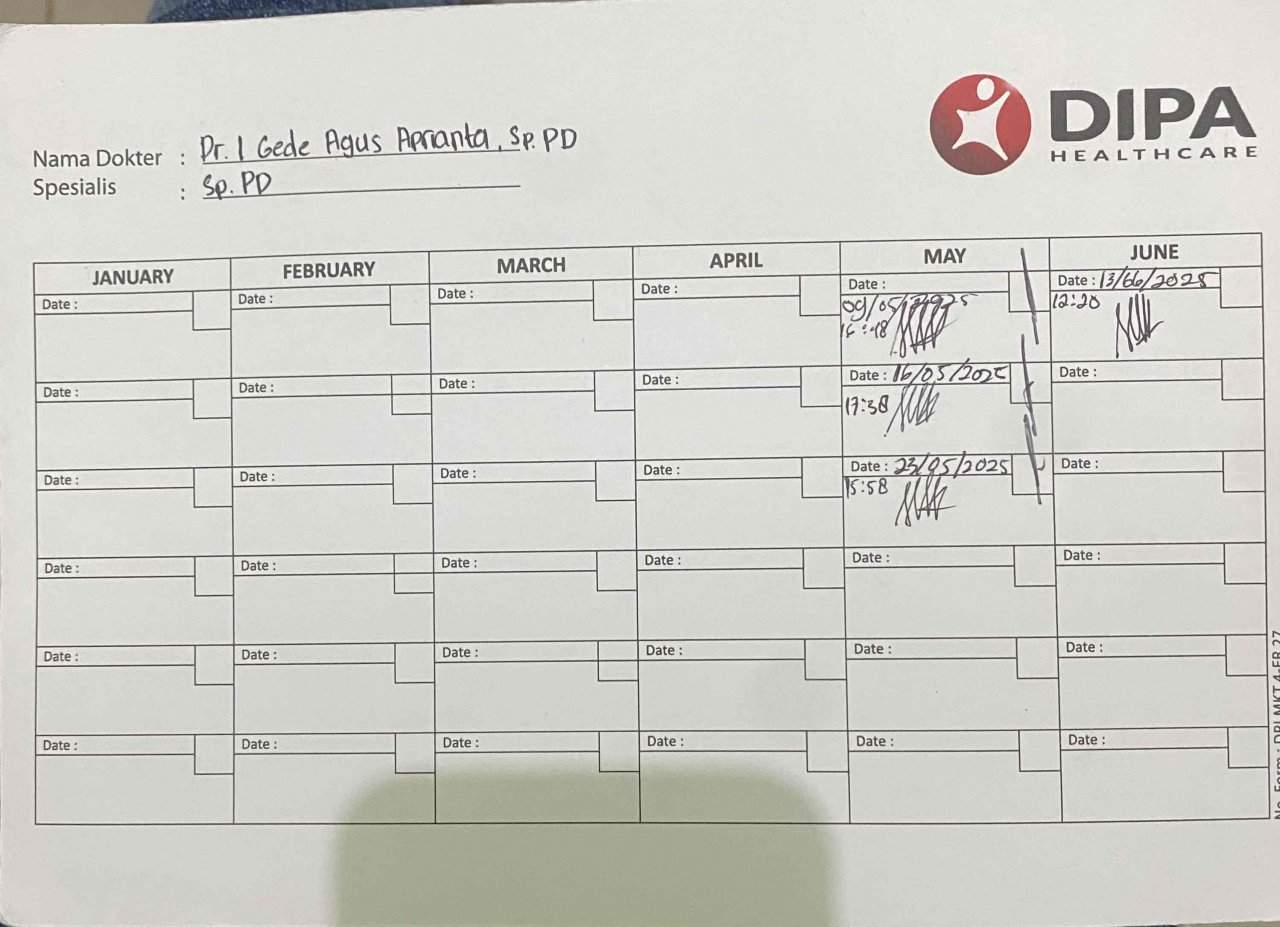 DIPA
HEALTHCARE
Nama Dokter : Dr. I Gede Agus Aprianta, Sp. PD
Spesialis : Sp. PD
JANUARY FEBRUARY MARCH APRIL MAY JUNE
Date : Date : Date : Date : Date : Date : 13/06/2025
09/05/2025 12:20
16:48
Date : Date : Date : Date : Date : 16/05/2025 Date :
17:38
Date : Date : Date : Date : Date : 23/05/2025 Date :
15:58
Date : Date : Date : Date : Date : Date :
Date : Date : Date : Date : Date : Date :
Date : Date : Date : Date : Date : Date :